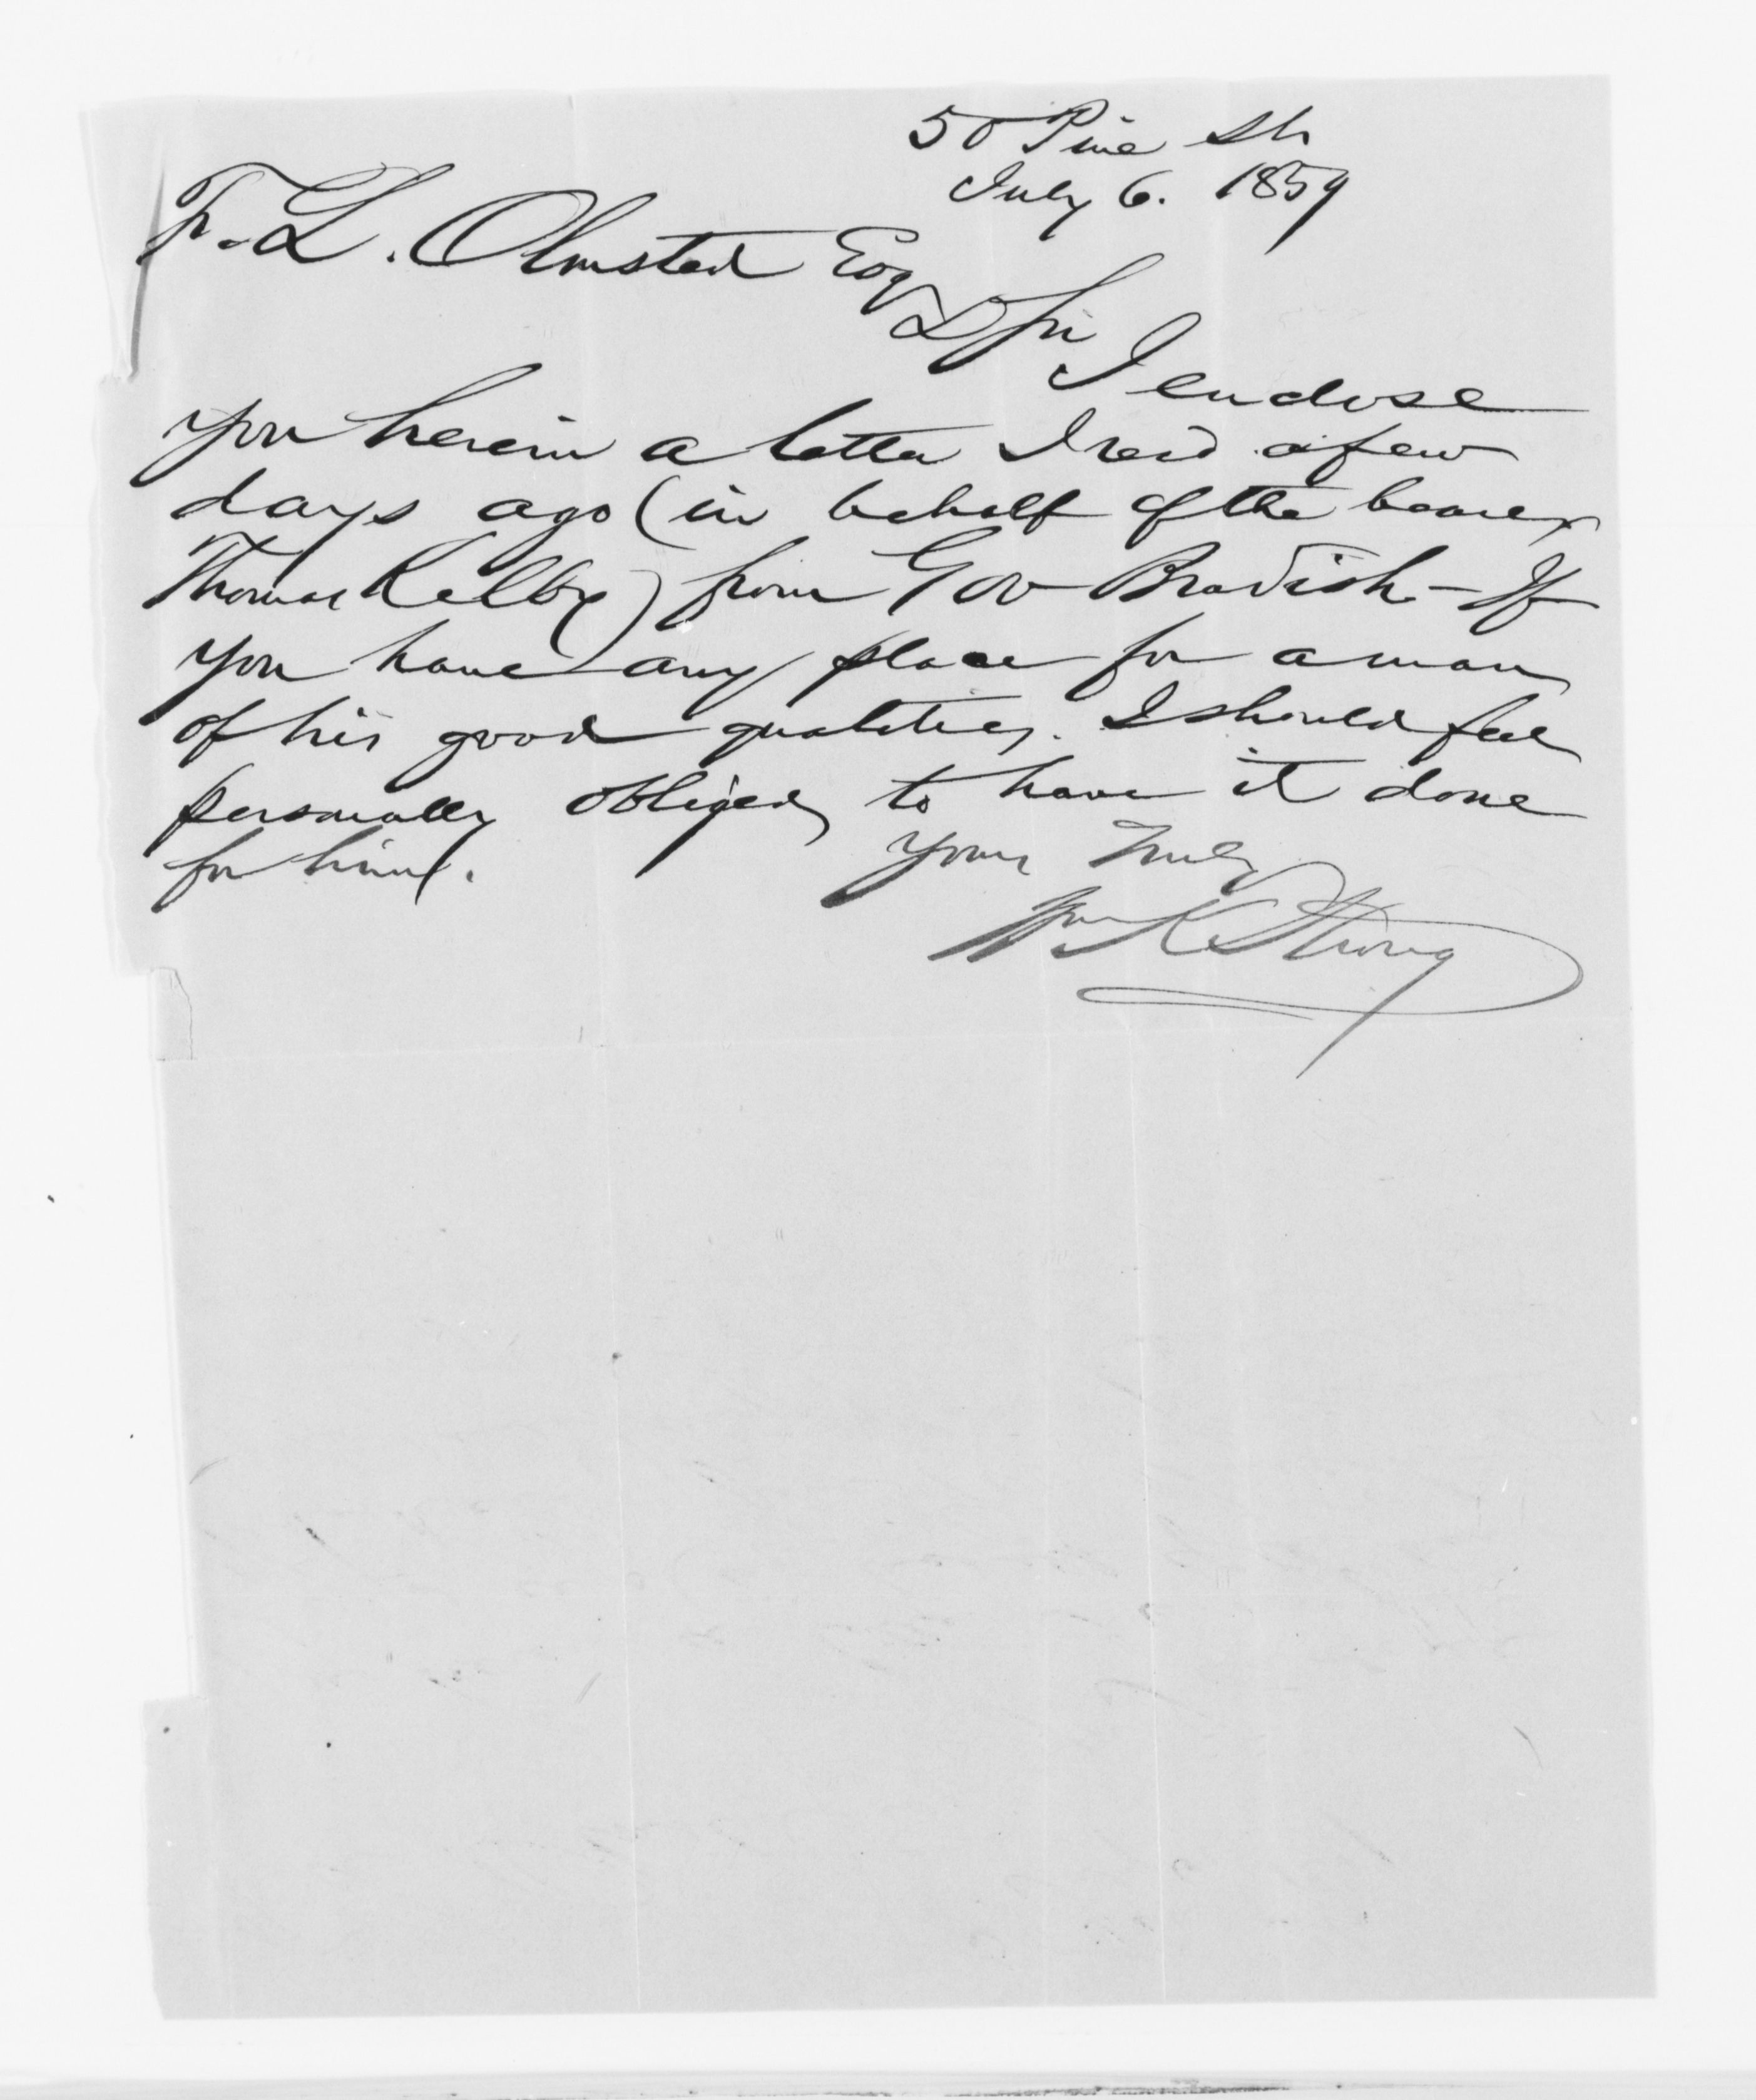 50 Pine St
July 6. 1859
F. L. Olmsted Esq
D Sir
I enclose
you herein a letter I recd a few
days ago (in behalf of the bearer
Thomas Kelby) from Gov Bradish - If
you have any place for a man
of his good qualities. I should feel
personally obliged to have it done
for him.
Yours Truly
Wm K Strong